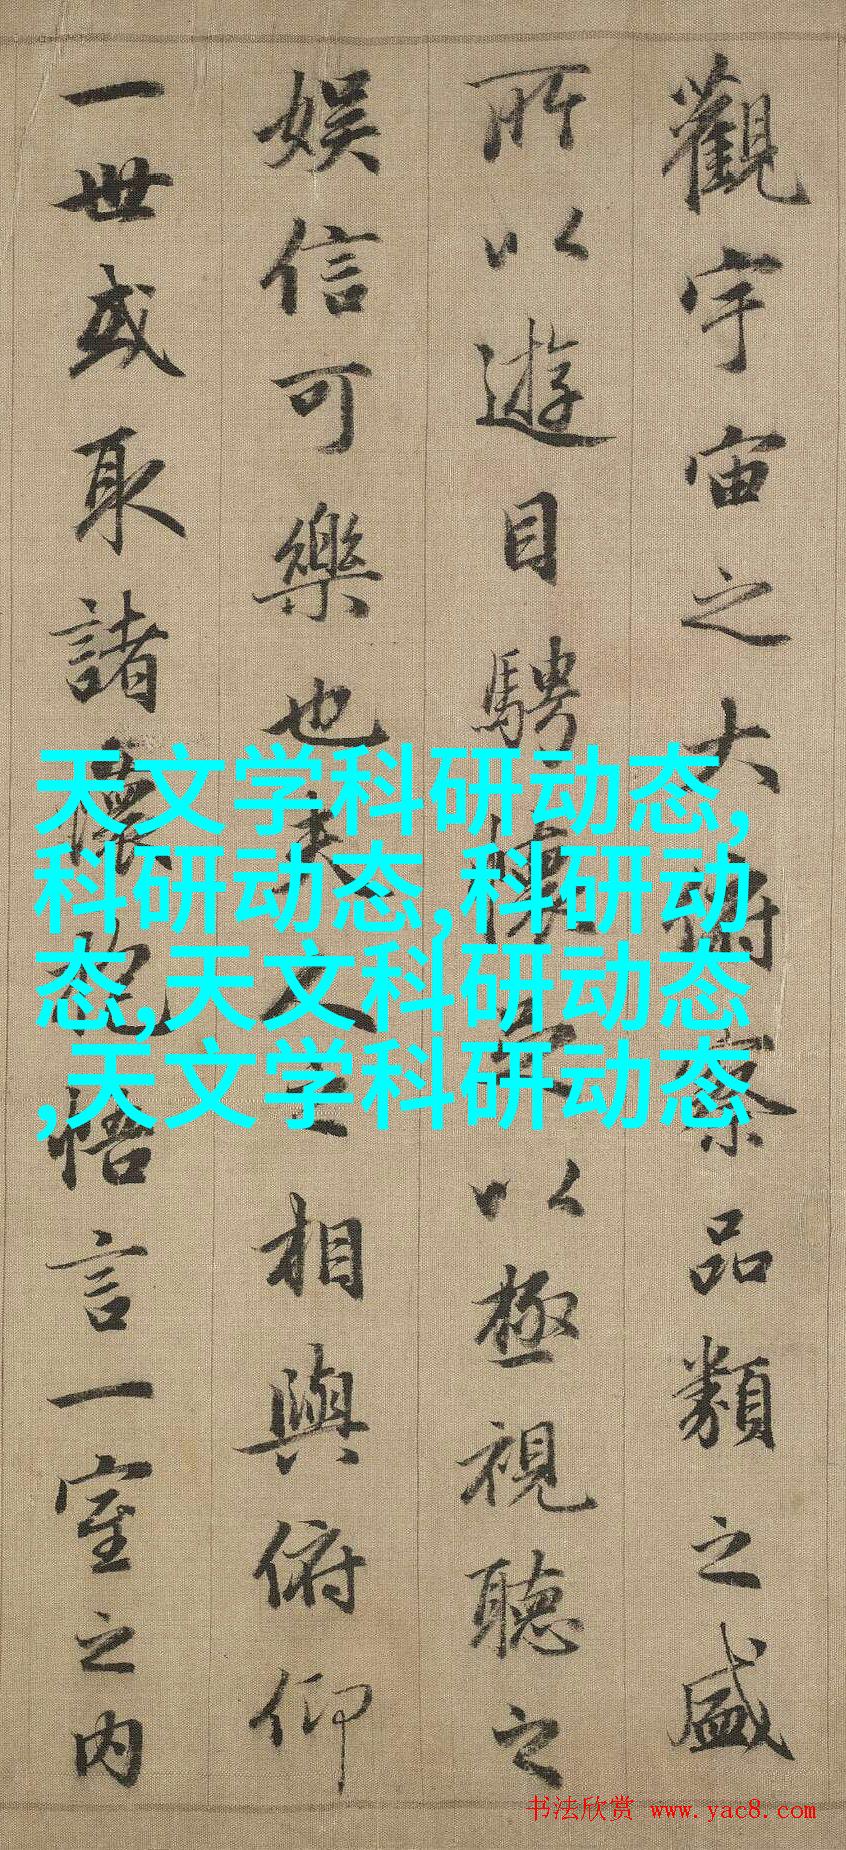 觀宇宙之大俯察品類之盛
所以遊目騁懷足以極視聽之
娛信可樂也夫人之相與俯仰
一世或取諸懷抱悟言一室之內
天文学科研动态,
科研动态,科研动
态,天文科研动态
,天文学科研动态
书法欣赏 www.yac8.com